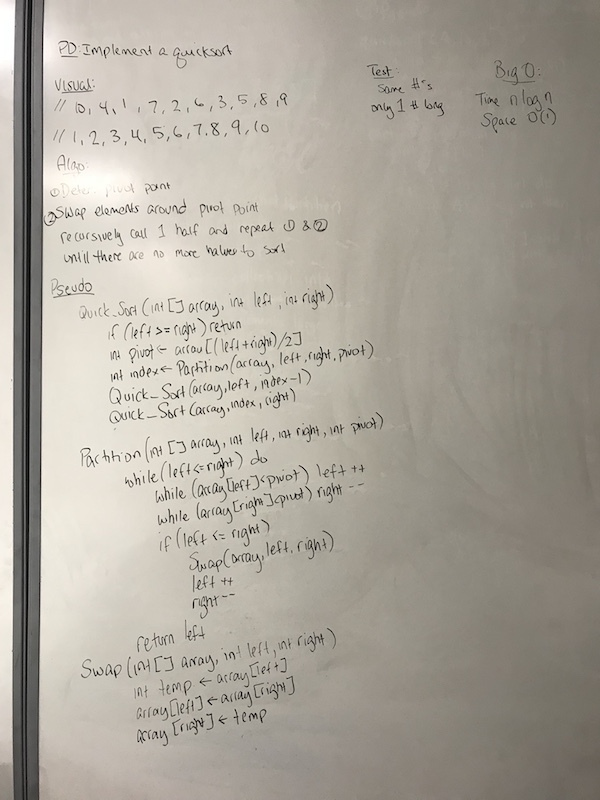 PD: Implement a quicksort
Visual:
// 10, 4, 1, 7, 2, 6, 3, 5, 8, 9
// 1, 2, 3, 4, 5, 6, 7, 8, 9, 10
Test:
Same #'s
only 1 # long
Big O:
Time n log n
Space O(1)
Algo:
① Deter. pivot point
② Swap elements around pivot point
recursively call 1 half and repeat ① & ②
untill there are no more halves to sort
Pseudo
Quick_Sort (int [] array, int left, int right)
if (left >= right) return
int pivot ← array [(left+right)/2]
int index ← Partition (array, left, right, pivot)
Quick_Sort (array, left, index-1)
Quick_Sort (array, index, right)
Partition (int [] array, int left, int right, int pivot)
while (left <= right) do
while (array[left] < pivot) left ++
while (array[right] < pivot) right --
if (left <= right)
Swap (array, left, right)
left ++
right --
return left
Swap (int [] array, int left, int right)
int temp ← array [left]
array [left] ← array [right]
array [right] ← temp